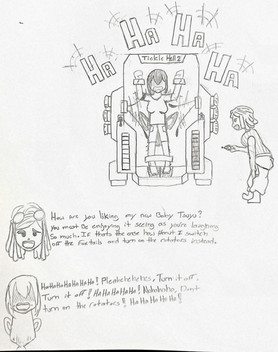 HA HA HA HA
Tickle Hell 2
How are you liking my new Baby Tayu?
You must be enjoying it seeing as you're laughing
So much. If thats the case how about I switch
off the foxtails and turn on the rotators instead.
HaHaHaHaHaHaHa! Pleahehehehes, Turn it off,
Turn it off! HaHaHaHaHa! Nohohoho, Don't
turn on the rotators! HaHaHaHaHa!